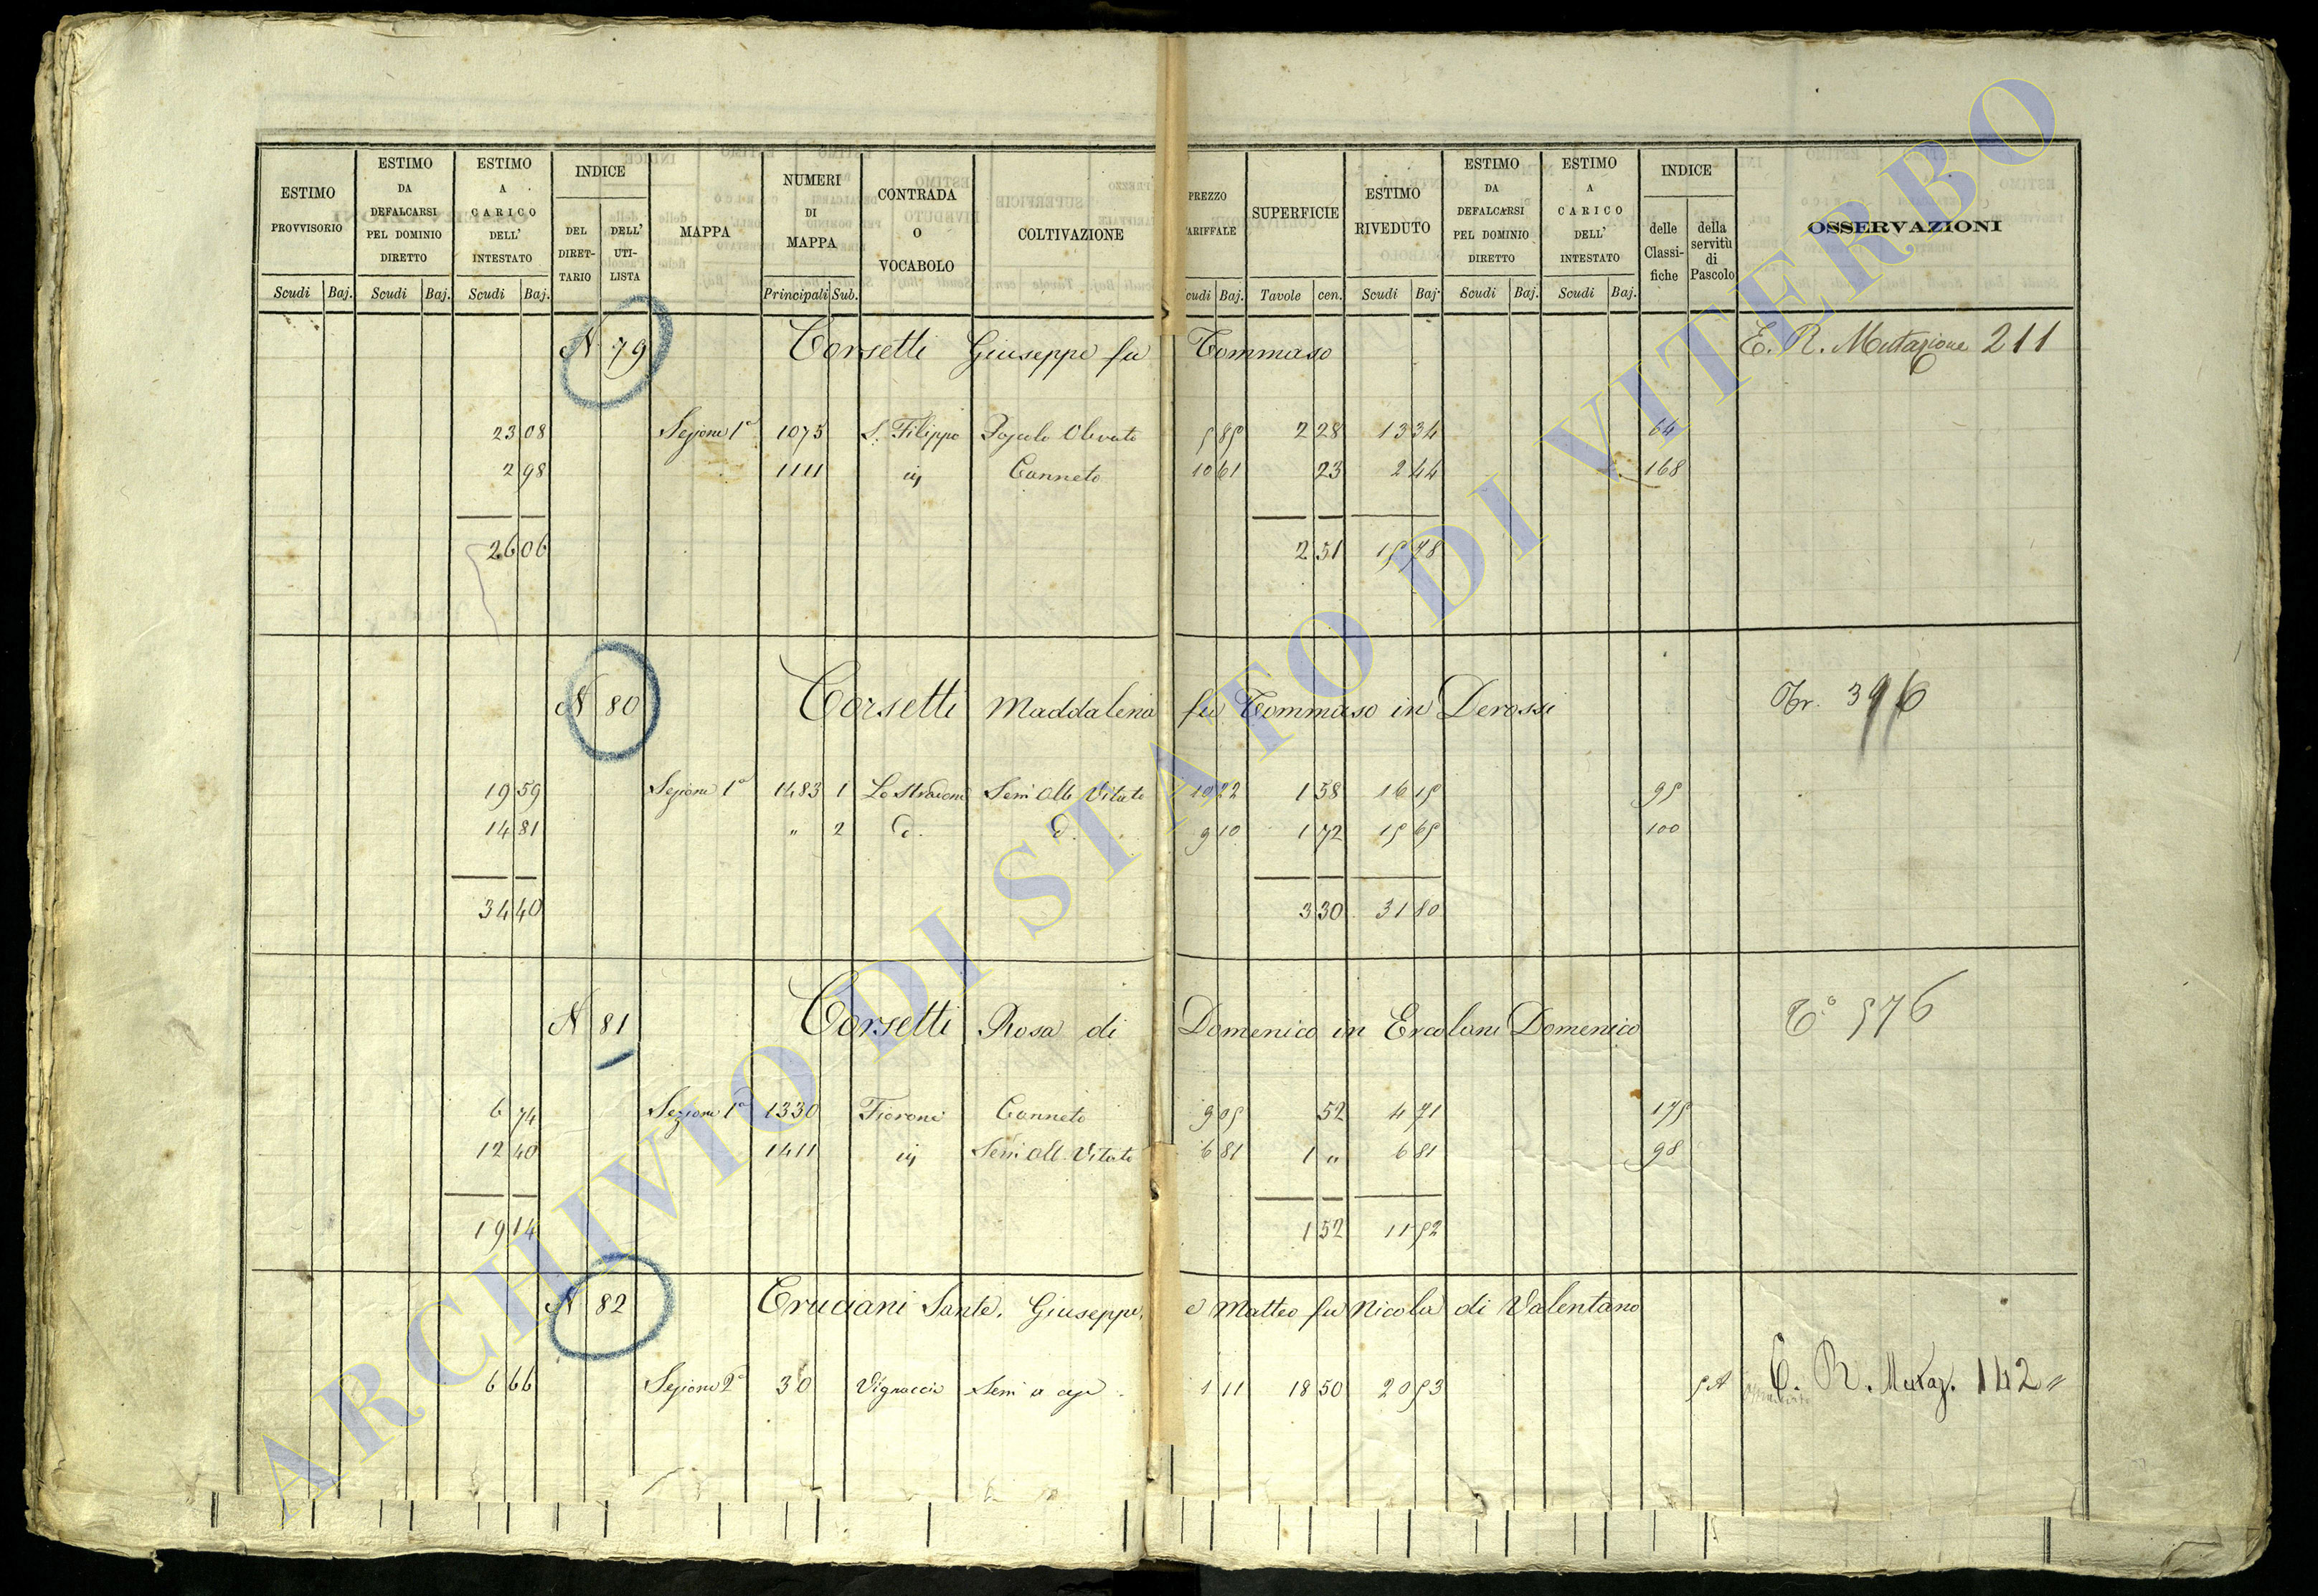 ESTIMO PROVVISORIO | ESTIMO DA DEFALCARSI PEL DOMINIO DIRETTO | ESTIMO A CARICO DELL' INTESTATO | INDICE DEL DIRET-TARIO | DELL' UTI-LISTA | MAPPA | NUMERI DI MAPPA | CONTRADA O VOCABOLO | COLTIVAZIONE | PREZZO TARIFFALE | SUPERFICIE | ESTIMO RIVEDUTO | ESTIMO DA DEFALCARSI PEL DOMINIO DIRETTO | ESTIMO A CARICO DELL' INTESTATO | INDICE delle Classi-fiche | della servitù di Pascolo | OSSERVAZIONI
Scudi Baj. Scudi Baj. Scudi Baj. Principali Sub. cudi Baj. Tavole cen. Scudi Baj. Scudi Baj. Scudi Baj.
N 79 Corsetti Giuseppe fu Tommaso E. R. Mutazione 211
23 08 Sezione 1a 1075 S. Filippo Olivato 5 85 2 28 13 34 64
2 98 1111 Canneto 10 61 23 2 44 168
26 06 2 51 15 78
N 80 Corsetti Maddalena fu Tommaso in Derossi 396
19 59 Sezione 1a 1483 1 Lo Stradone Sem Alb Vitato 10 22 1 58 16 15 95
14 81 " 2 d. d. 9 10 1 72 15 65 100
34 40 3 30 31 80
N 81 Corsetti Rosa di Domenico in Ercolani Domenico 576
6 74 Sezione 1a 1330 Canneto 9 05 52 4 71 175
12 40 1411 Sem Alb. Vitato 6 81 1 " 6 81 98
19 14 1 52 11 52
N 82 Cruciani Sante, Giuseppe, e Matteo fu Nicola di Valentano
6 66 Sezione 2a 30 Sem 1 11 18 50 20 53 5A R. Mutaz. 142 "
ARCHIVIO DI STATO DI VITERBO